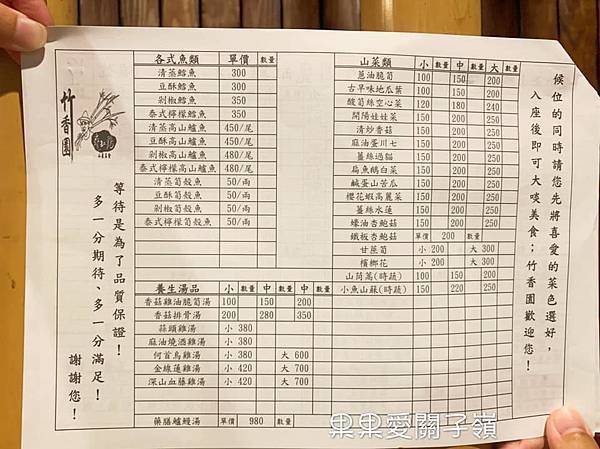 竹香園
等待是為了品質保證！
多一分期待、多一分滿足！
謝謝您！
各式魚類 單價 數量
清蒸鱈魚 300
豆酥鱈魚 300
剁椒鱈魚 350
泰式檸檬鱈魚 350
清蒸高山鱸魚 450/尾
豆酥高山鱸魚 450/尾
剁椒高山鱸魚 480/尾
泰式檸檬高山鱸魚 480/尾
清蒸筍殼魚 50/兩
豆酥筍殼魚 50/兩
剁椒筍殼魚 50/兩
泰式檸檬筍殼魚 50/兩
養生湯品 小 數量 中 數量 中 數量
香菇雞油脆筍湯 100 150 200
香菇排骨湯 200 280 350
蒜頭雞湯 小 380
麻油燒酒雞湯 小 380
何首烏雞湯 小 380 大 600
金線蓮雞湯 小 420 大 700
深山血藤雞湯 小 420 大 700
藥膳鱸鰻湯 單價 980 數量
山菜類 小 數量 中 數量 大 數量
蔥油脆筍 100 150 200
古早味地瓜葉 100 150 200
酸筍絲空心菜 120 180 240
開陽娃娃菜 150 200 250
清炒香菇 150 200 250
麻油蛋川七 150 200 250
薑絲過貓 150 200 250
扁魚鵝白菜 150 200 250
鹹蛋山苦瓜 150 200 250
櫻花蝦高麗菜 150 200 250
薑絲水蓮 150 200 250
蠔油杏鮑菇 150 200 250
鐵板杏鮑菇 單價 200 數量
甘蔗筍 小 200 大 300
檳榔花 小 200 大 300
山茼蒿(時蔬) 100 150 200
小魚山蘇(時蔬) 150 220 250
候位的同時請您先將喜愛的菜色選好，
入座後即可大啖美食；竹香園歡迎您！
果果愛關子嶺